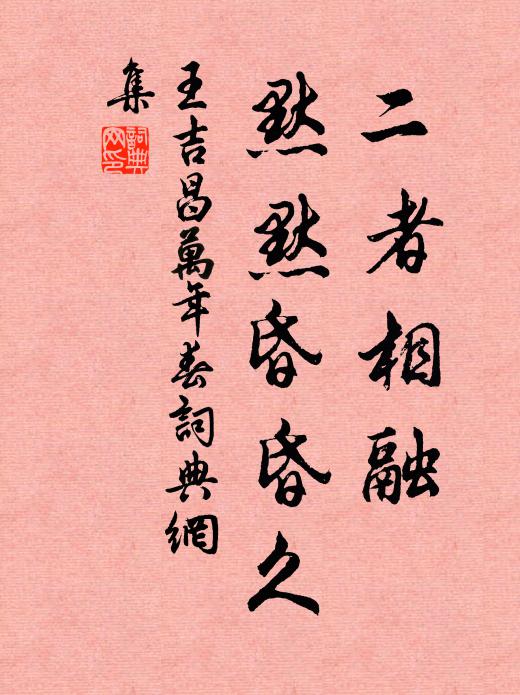 二者相融
默默昏昏久
王吉昌萬年春詞典網
集
詞典
网印